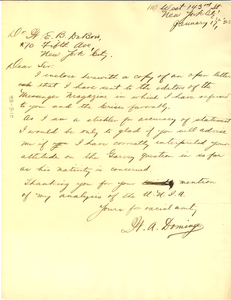 West 143rd St.
New York City
January 15,
Dr. W. E. B. DuBois,
Fifth Ave,
New York City.
Dear Sir:
I inclose herewith a copy of an open letter
that I have sent to the editors of the
Messenger Magazine in which I have referred
to you and the Crisis favorably.
As I am a stickler for accuracy of statement
I would only be glad if you will advise
me if I have correctly interpreted your
attitude on the Garvey question in so far
as his nativity is concerned.
Thanking you for your mention
of my analysis of the U.N.I.A.
Yours for racial unity,
W. A. Domingo